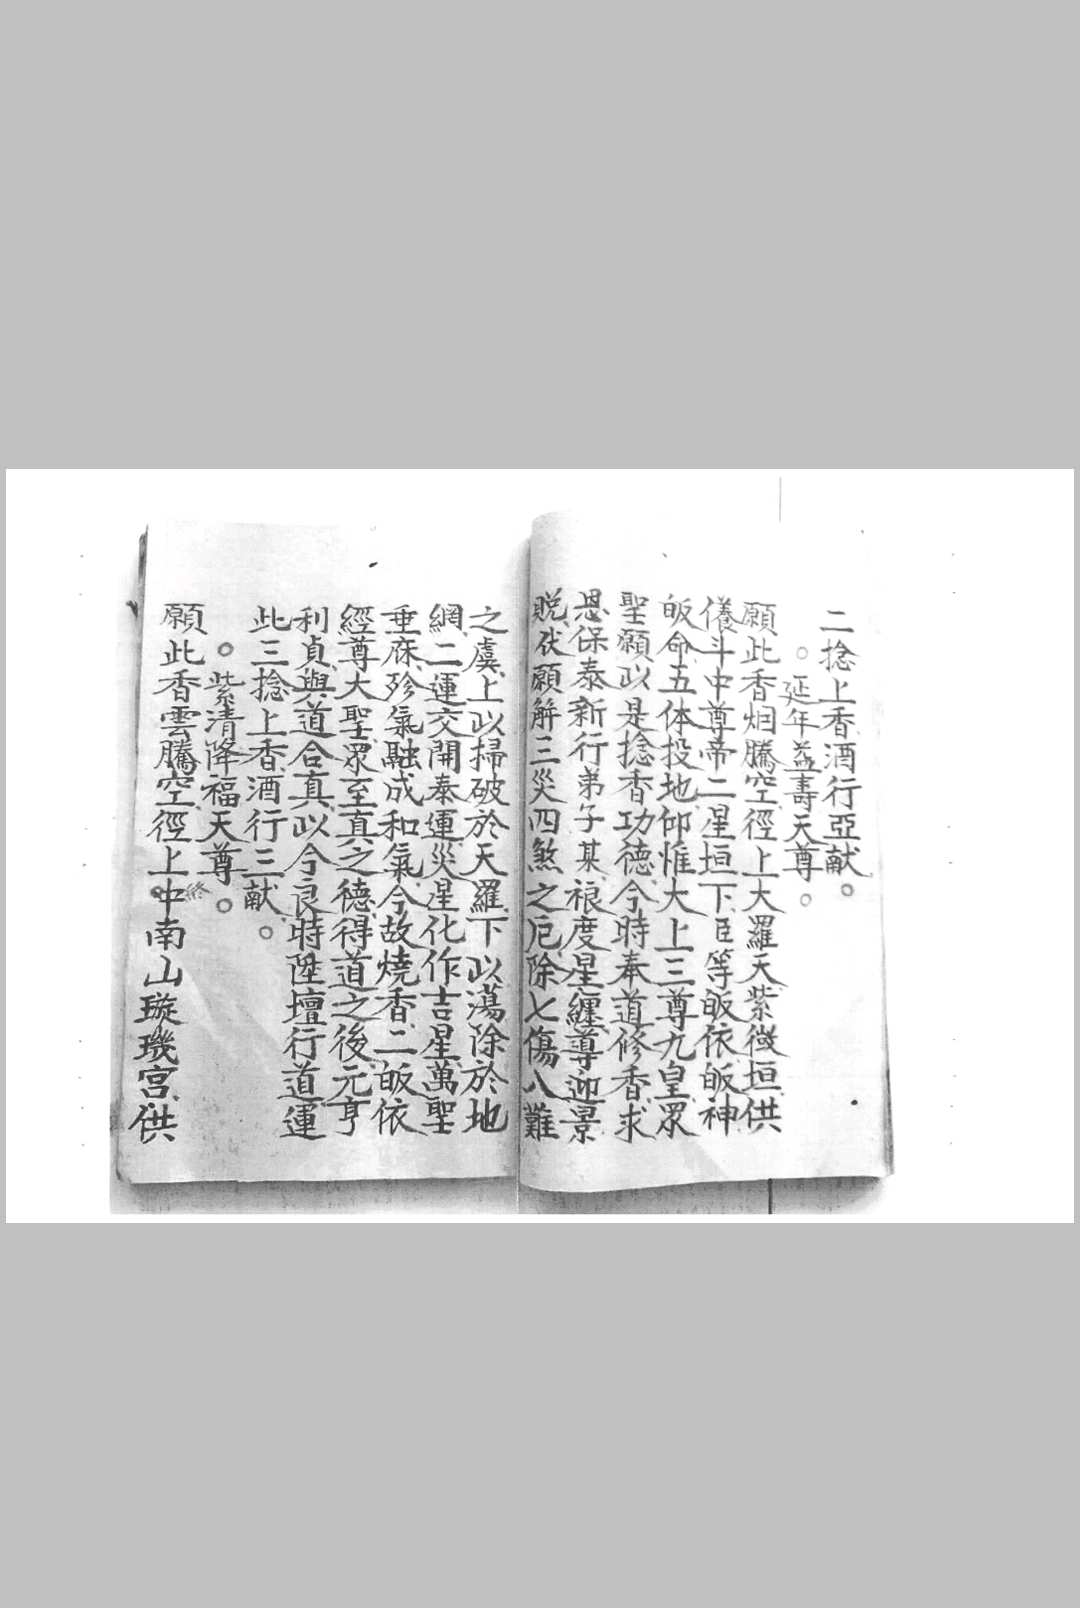 二捻上香酒行亞献。
。延年益壽天尊。
願此香烟騰空徑上大羅天紫微垣供
儀斗中尊帝二星垣下臣等皈依皈神
皈命五体投地仰惟大上三尊九皇眾
聖願以是捻香功德令時奉道修香求
恩保泰新行弟子某禄度星纏導迎景
貺伏願解三災四煞之厄除七傷八難
之虞上以掃破於天羅下以蕩除於地
網二運交開泰運災星化作吉星萬聖
垂庥殄氣融成和氣今故燒香二皈依
經尊大聖眾至真之德得道之後元亨
利貞與道合真以今良時陞壇行道運
此三捻上香酒行三献。
。紫清降福天尊。終
願此香雲騰空徑上中南山璇璣宮供